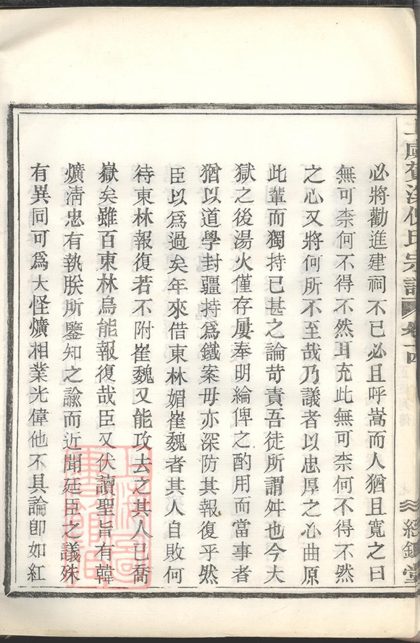 必將勸進建祠不已必且呼嵩而人猶且寬之曰
無可柰何不得不然耳充此無可柰何不得不然
之心又將何所不至哉乃議者以忠厚之心曲原
此輩而獨持已甚之論苛責吾徒所謂舛也今大
獄之後湯火僅存屢奉明綸俾之酌用而當事者
猶以道學封疆持爲鐵案毋亦深防其報復乎然
臣以爲過矣年來借東林媚崔魏者其人自敗何
待東林報復若不附崔魏又能攻去之其人已喬
嶽矣雖百東林烏能報復哉臣又伏讀聖旨有韓
爌淸忠有執朕所鑒知之諭而近聞廷臣之議殊
有異同可爲大怪爌相業光偉他不具論卽如紅